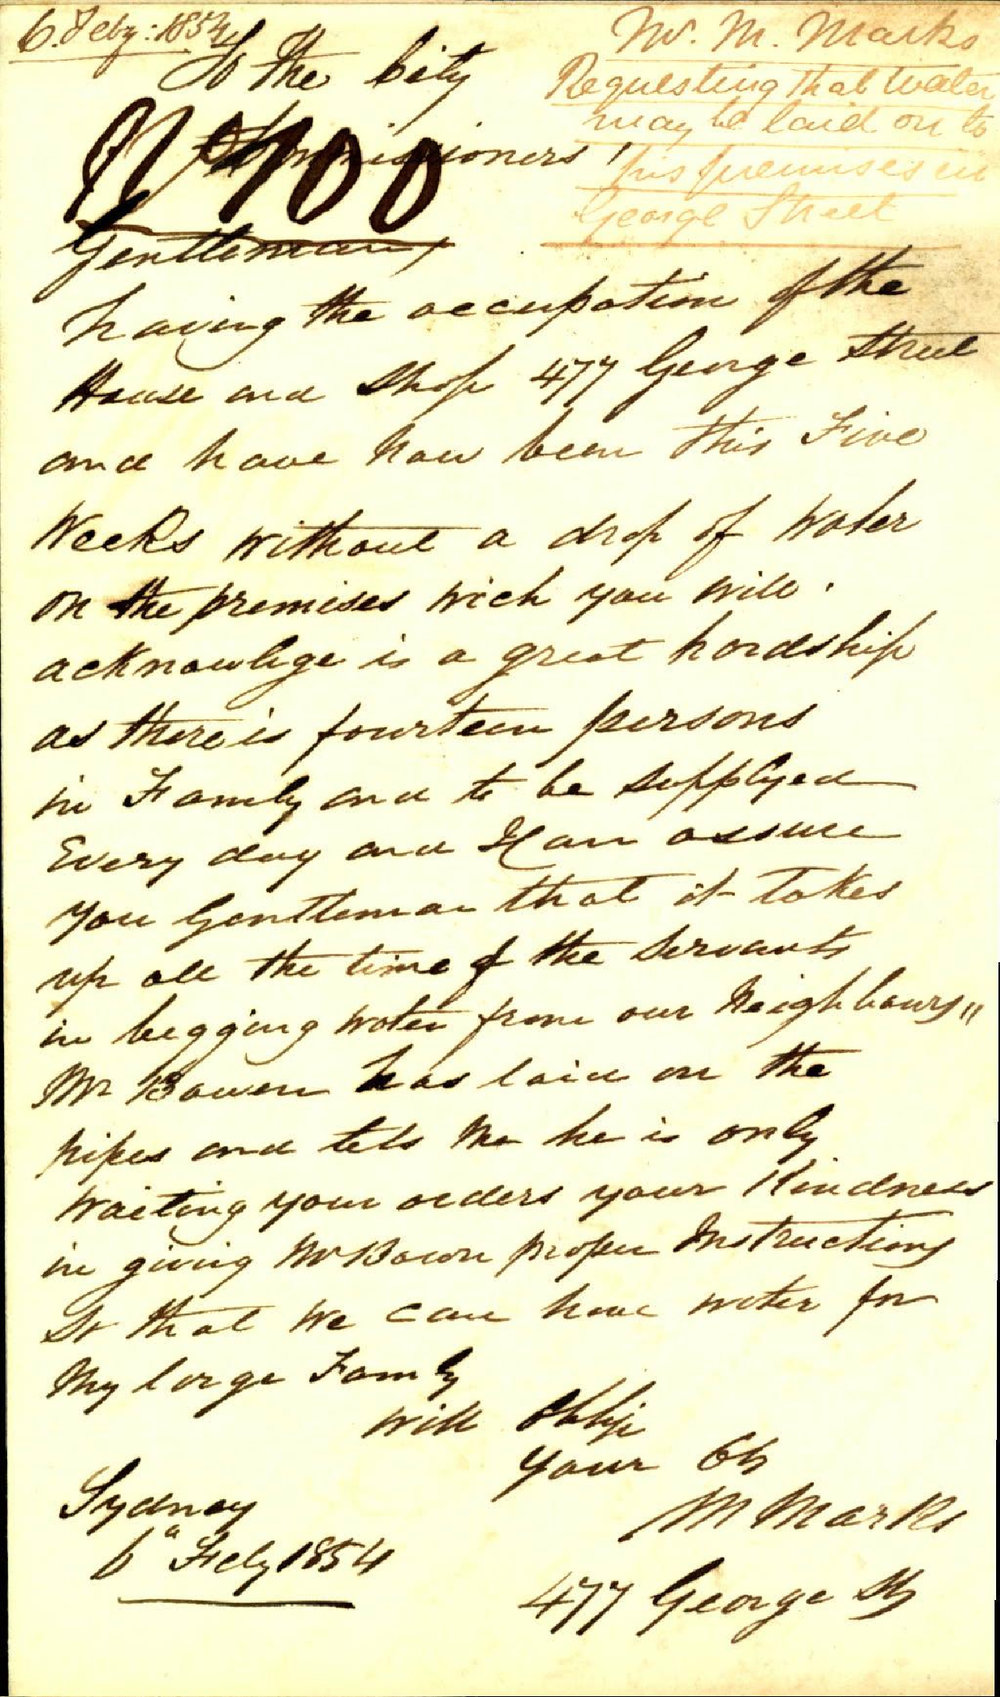 6. Feby: 1854
Mr. M. Marks
Requesting that water
may be laid on to
his premises in
George Street
To the City
Commissioners!
No 100
Gentleman,
having the occupation of the
House and Shop 477 George Street
and have now been this Five
Weeks without a drop of water
on the premises wich you will
acknowlige is a great hardship
as there is fourteen persons
in Family and to be supplyed
Every day and I can assure
you Gentleman that it takes
up all the time of the Servants
in begging water from our Neighbours"
Mr Bowen has laid on the
pipes and tels me he is only
waiting your orders your Kindness
in giving Mr Bown proper Instructions
So that we can have water for
My large Family
will oblije
your Ob
M Marks
Sydney
6" Feby 1854
477 George St